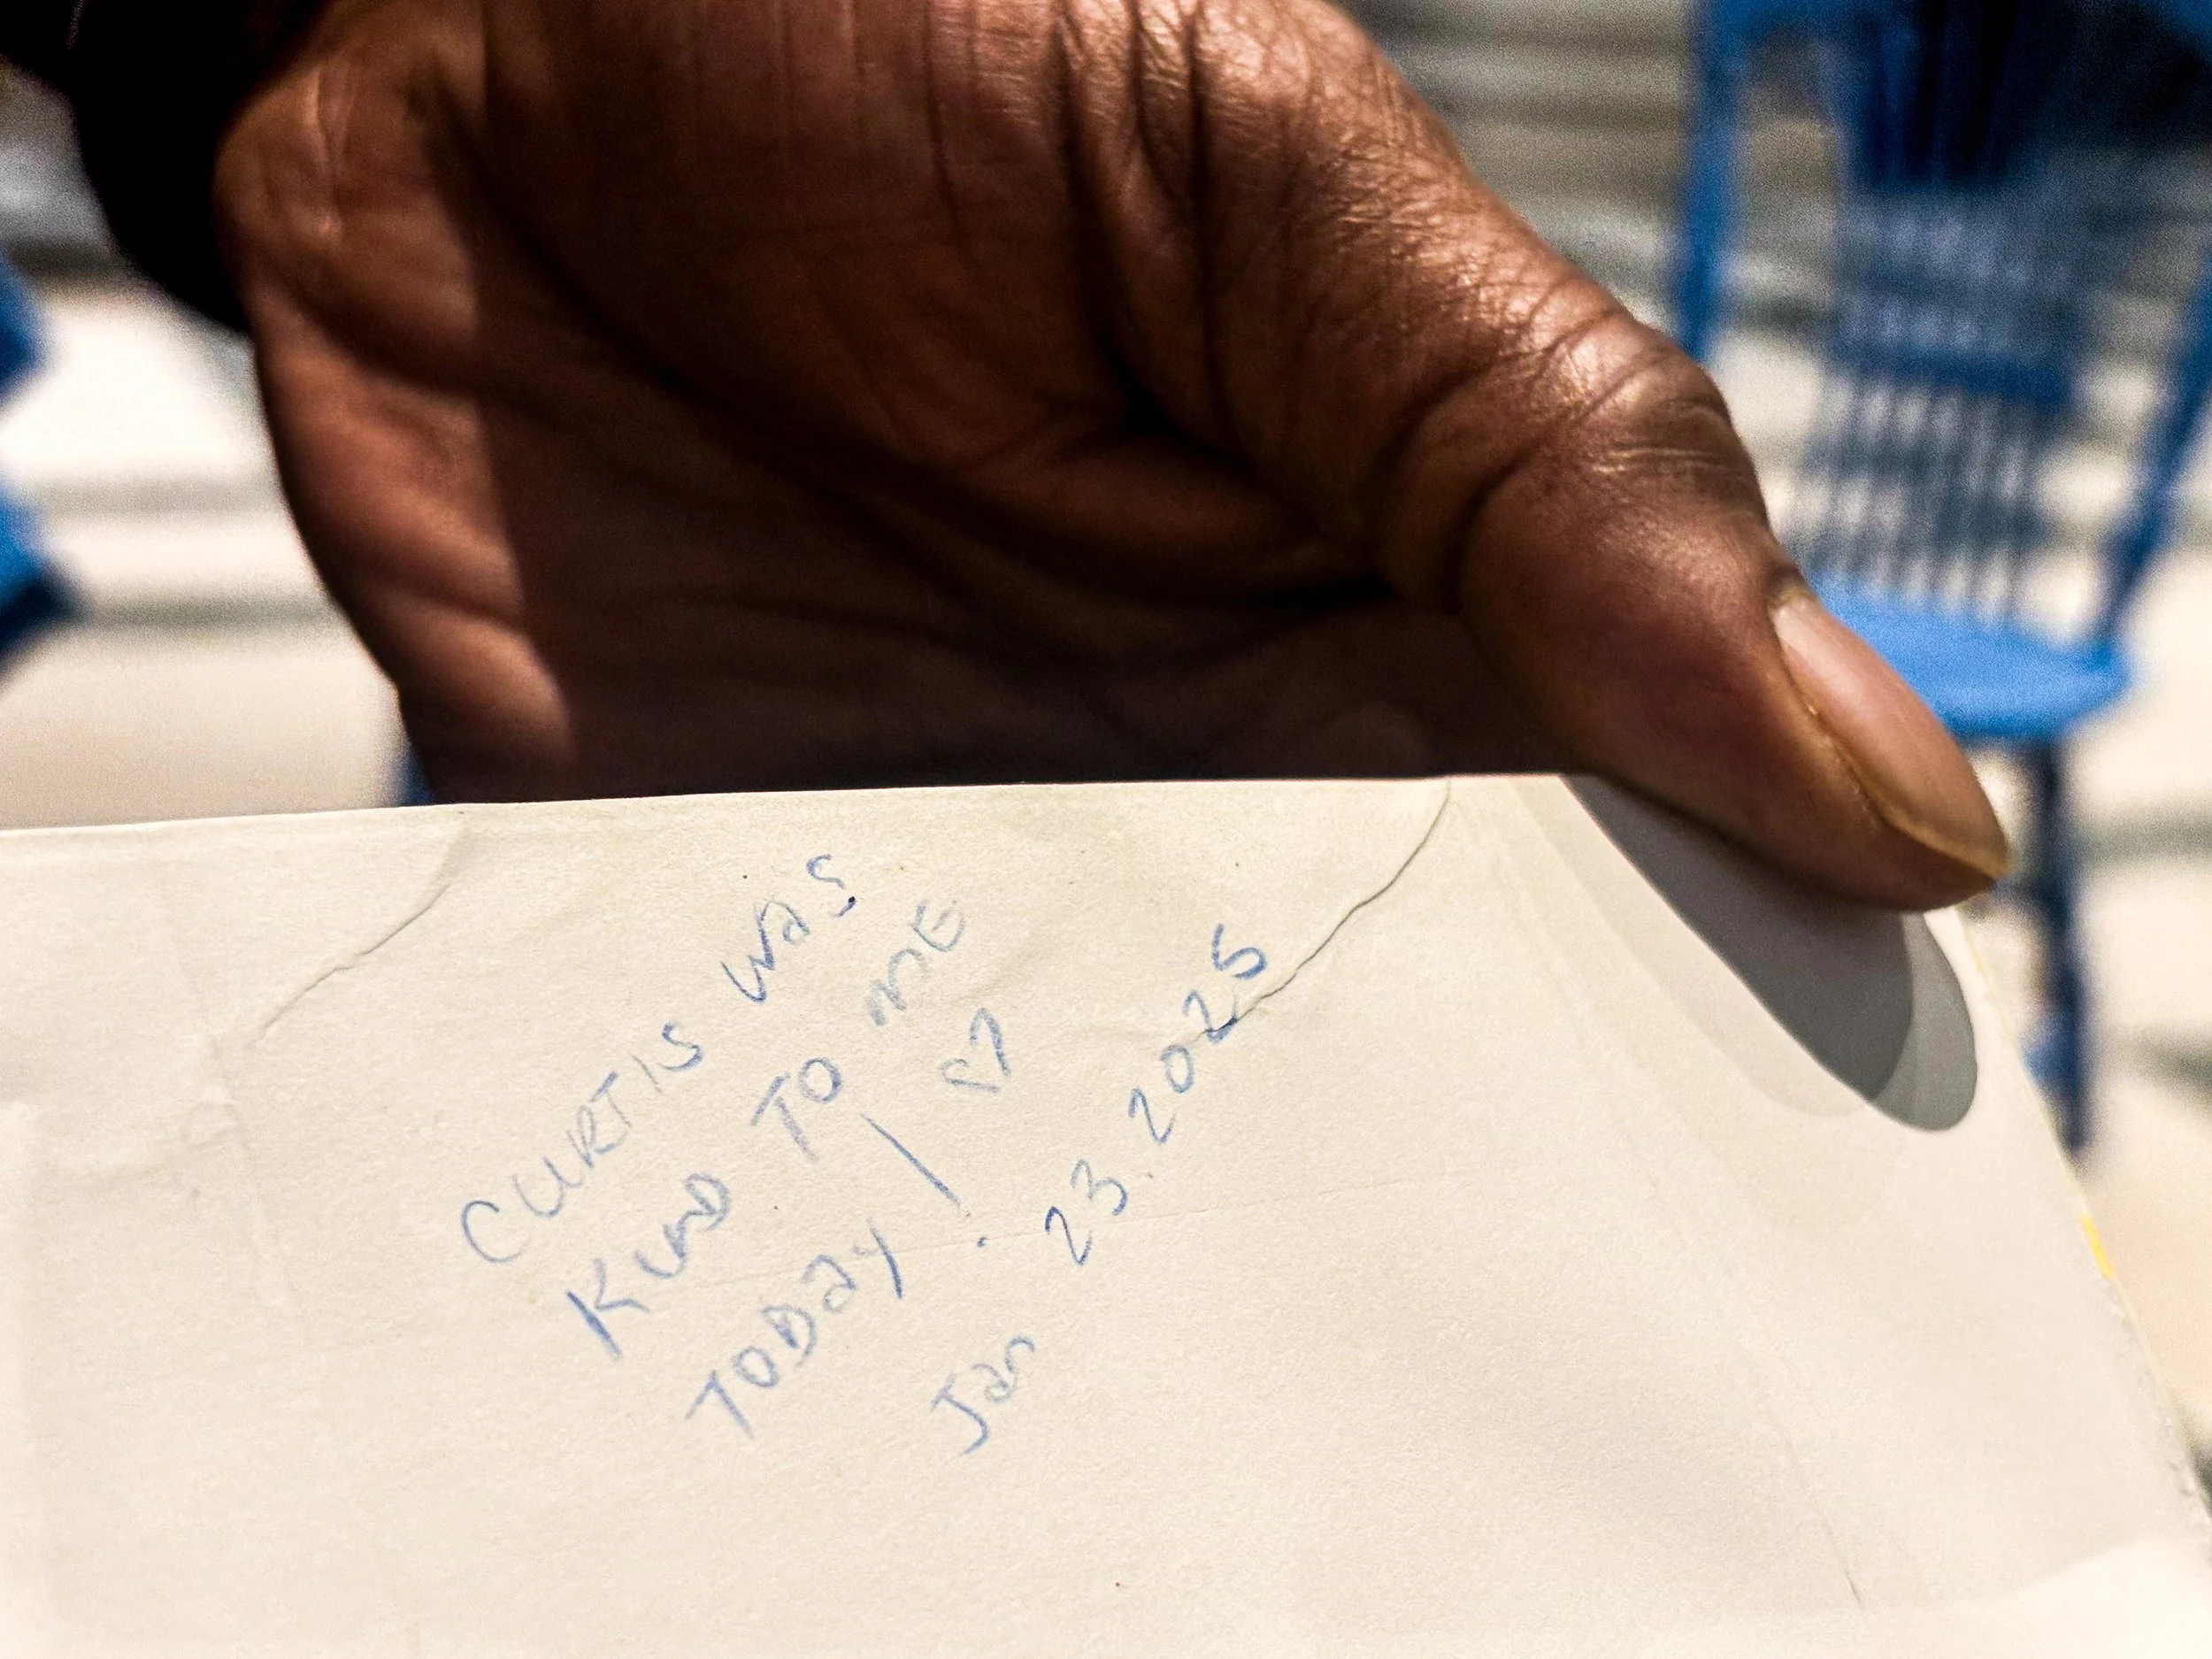 CURTIS was
KIND TO ME
TODAY! ♡
Jan 23.2025